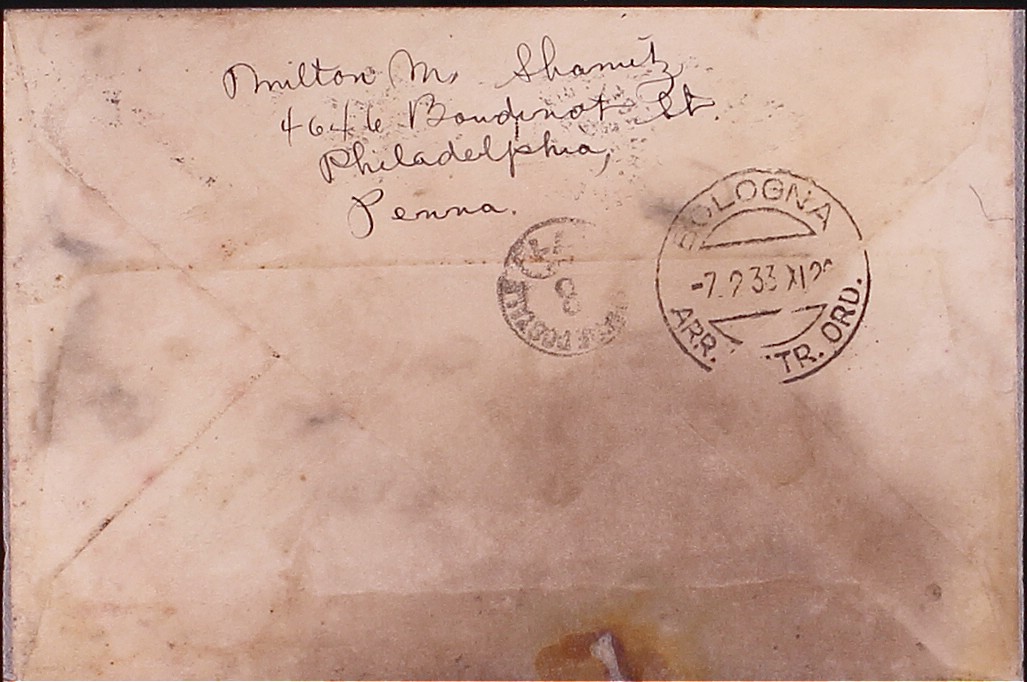 Milton M. Shamitz
4646 Boudinot St.
Philadelphia,
Penna.
BOLOGNA
-7.2 33 XI
ARR. TR. ORD.
8